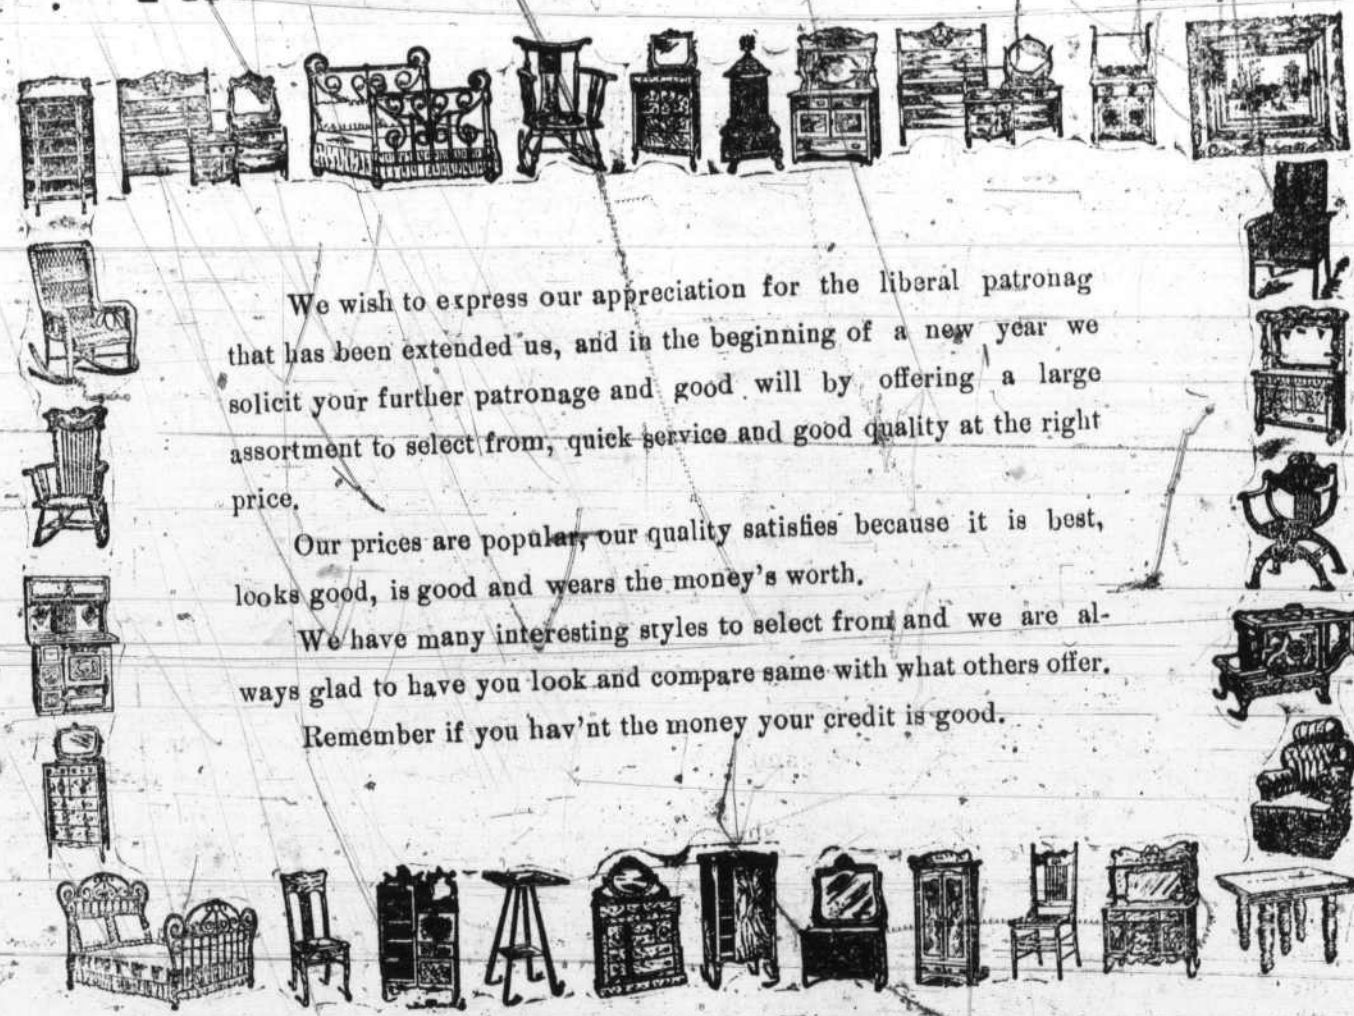 We wish to express our appreciation for the liberal patronag
that has been extended us, and in the beginning of a new year we
solicit your further patronage and good will by offering a large
assortment to select from, quick service and good quality at the right
price.
Our prices are popular, our quality satisfies because it is best,
looks good, is good and wears the money's worth.
We have many interesting styles to select from and we are al-
ways glad to have you look and compare same with what others offer.
Remember if you hav'nt the money your credit is good.